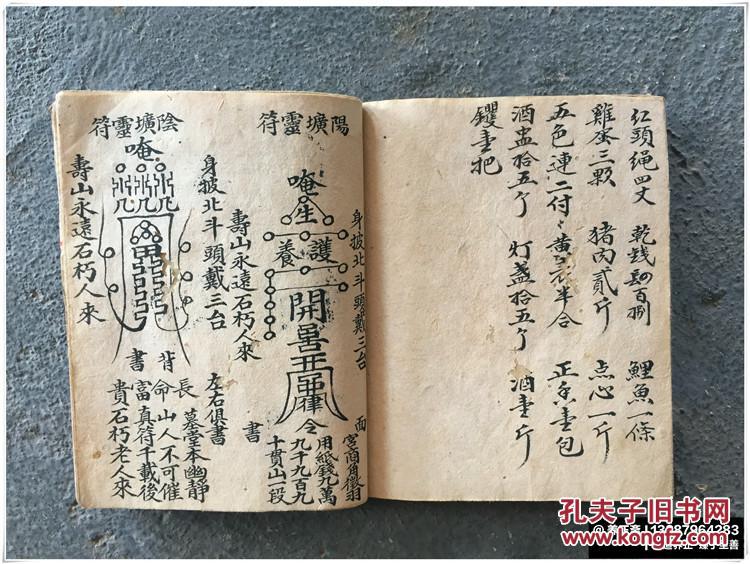 红頭绳四丈　乾钱四百捌　鯉魚一條
雞蛋三顆　猪肉貳斤　点心一斤
五色連二付　黄衣半合　正香壹包
酒盅拾五个　灯盏拾五个　酒壹斤
钁壹把
陽壙靈符
身披北斗頭戴三台
唵
生
護養
開
令
壽山永遠石朽人來
面
書
宮商角徵羽
用紙錢九萬
九千九百九
十貫山一段
陰壙靈符
唵
身披北斗頭戴三台
左右俱書
壽山永遠石朽人來
背
書
墓堂本幽靜
長命山人不可催
富真符千載後
貴石朽老人來
孔夫子旧书网
KONGFZ.COM